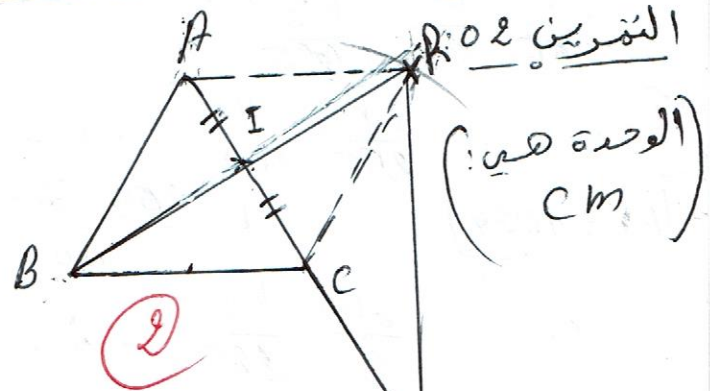 التمرين 02:
(الوحدة هي:
cm)
A
R
I
B
C
2